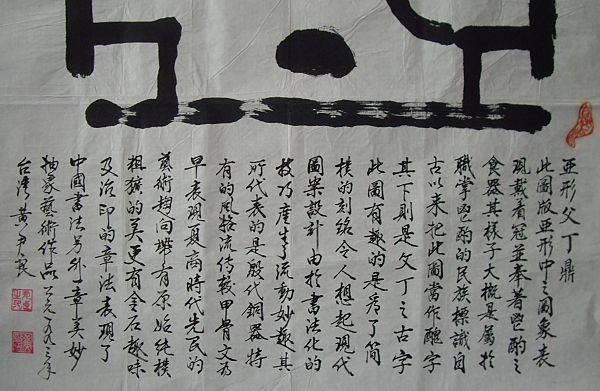 亞形父丁鼎
此圖版亞形中之圖象表
現戴着冠並奉著盥酌之
食器其樣子大概是屬於
職掌盥酌的民族標識自
古以來把此圖當作醜字
其下則是父丁之古字
此圖有趣的是為了簡
樸的刻鉻令人想起現代
圖案設計由於書法化的
技巧產生了流動妙趣其
所代表的是殷代銅器特
有的風格流傳較甲骨文為
早表現夏商時代先民的
藝術趨向帶有原始純樸
粗獷的美更有金石趣味
及治印的章法表現了
中國書法另外一章美妙
抽象藝術作品 一九九三年
台灣 黃尹民